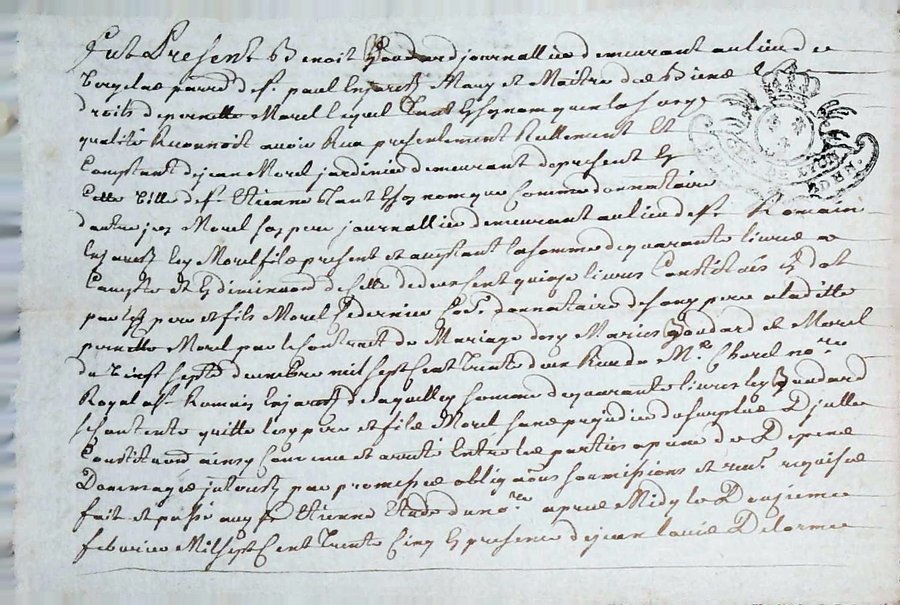 Fut Present Benoit Goudard journallier demeurant au lieu de
paroisse de st paul En Jarest Mary et Maitre des Biens &
droits de pernette Morel lequel tant En son nom qu'en la susd
qualité Reconnoit avoir Reçu presentement Reellement Et
Comptant de jean Morel jardinier demeurant de present En
Cette ville de st Etienne tant En son nom que Comme donnataire
d'antoine Morel son pere journallier demeurant au lieu de st Romain
En jarest Les Morel fils present et acceptant la somme de quarante livres a
Compte et En diminution de Celle de de cent quinze livres Constitués En dot
par les pere et fils Morel Ce dernier Comme donnataire de son pere a laditte
pernette Morel par le Contrait de Mariage desd Mariés Goudard et Morel
du vingt sept decembre mil sept Cent trente deux Reçu de Me Chorel nore
Royal a st Romain En jarest de laquelle somme de quarante livres led Goudard
se Contente quitte lesd pere et fils Morel sans prejudice du surplus D'jcelle
Constitution ainsy Convenu et arreté Entre les parties a peine de Depens
Dommages interests par promesse obligations soumissions et renons requises
fait et passé aud st Etienne Etude du nore apres Midy le Douzieme
febvrier Mil sept Cent Trente Cinq En presence de jean louis Delorme